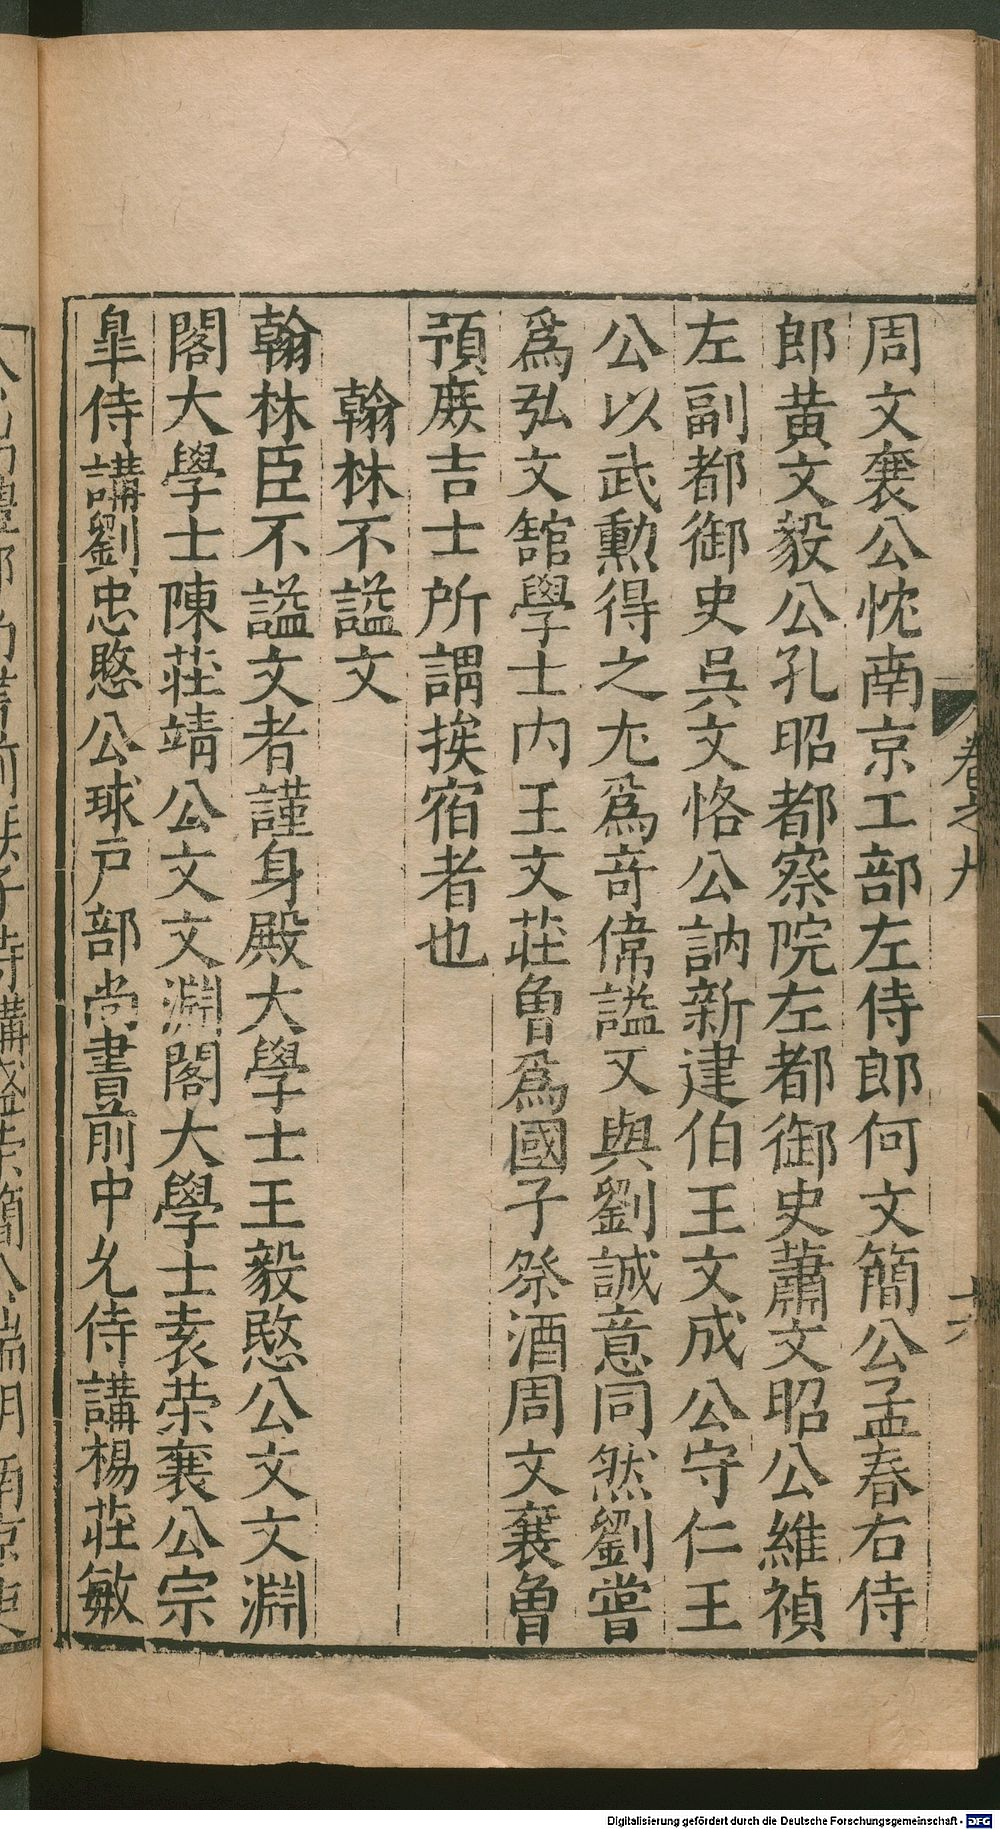 周文襄公忱南京工部左侍郎何文簡公孟春右侍
郎黃文毅公孔昭都察院左都御史蕭文昭公維禎
左副都御史吳文恪公訥新建伯王文成公守仁王
公以武勳得之尢爲竒偉謚又與劉誠意同然劉嘗
爲弘文舘學士内王文莊魯爲國子祭酒周文襄魯
預庻吉士所謂挨宿者也
翰林不謚文
翰林臣不謚文者謹身殿大學士王毅愍公文文淵
閣大學士陳莊靖公文文淵閣大學士袁荣襄公宗
臯侍講劉忠愍公球户部尚書前中允侍講楊莊敏
卷之九
十六
Digitalisierung gefördert durch die Deutsche Forschungsgemeinschaft - DFG